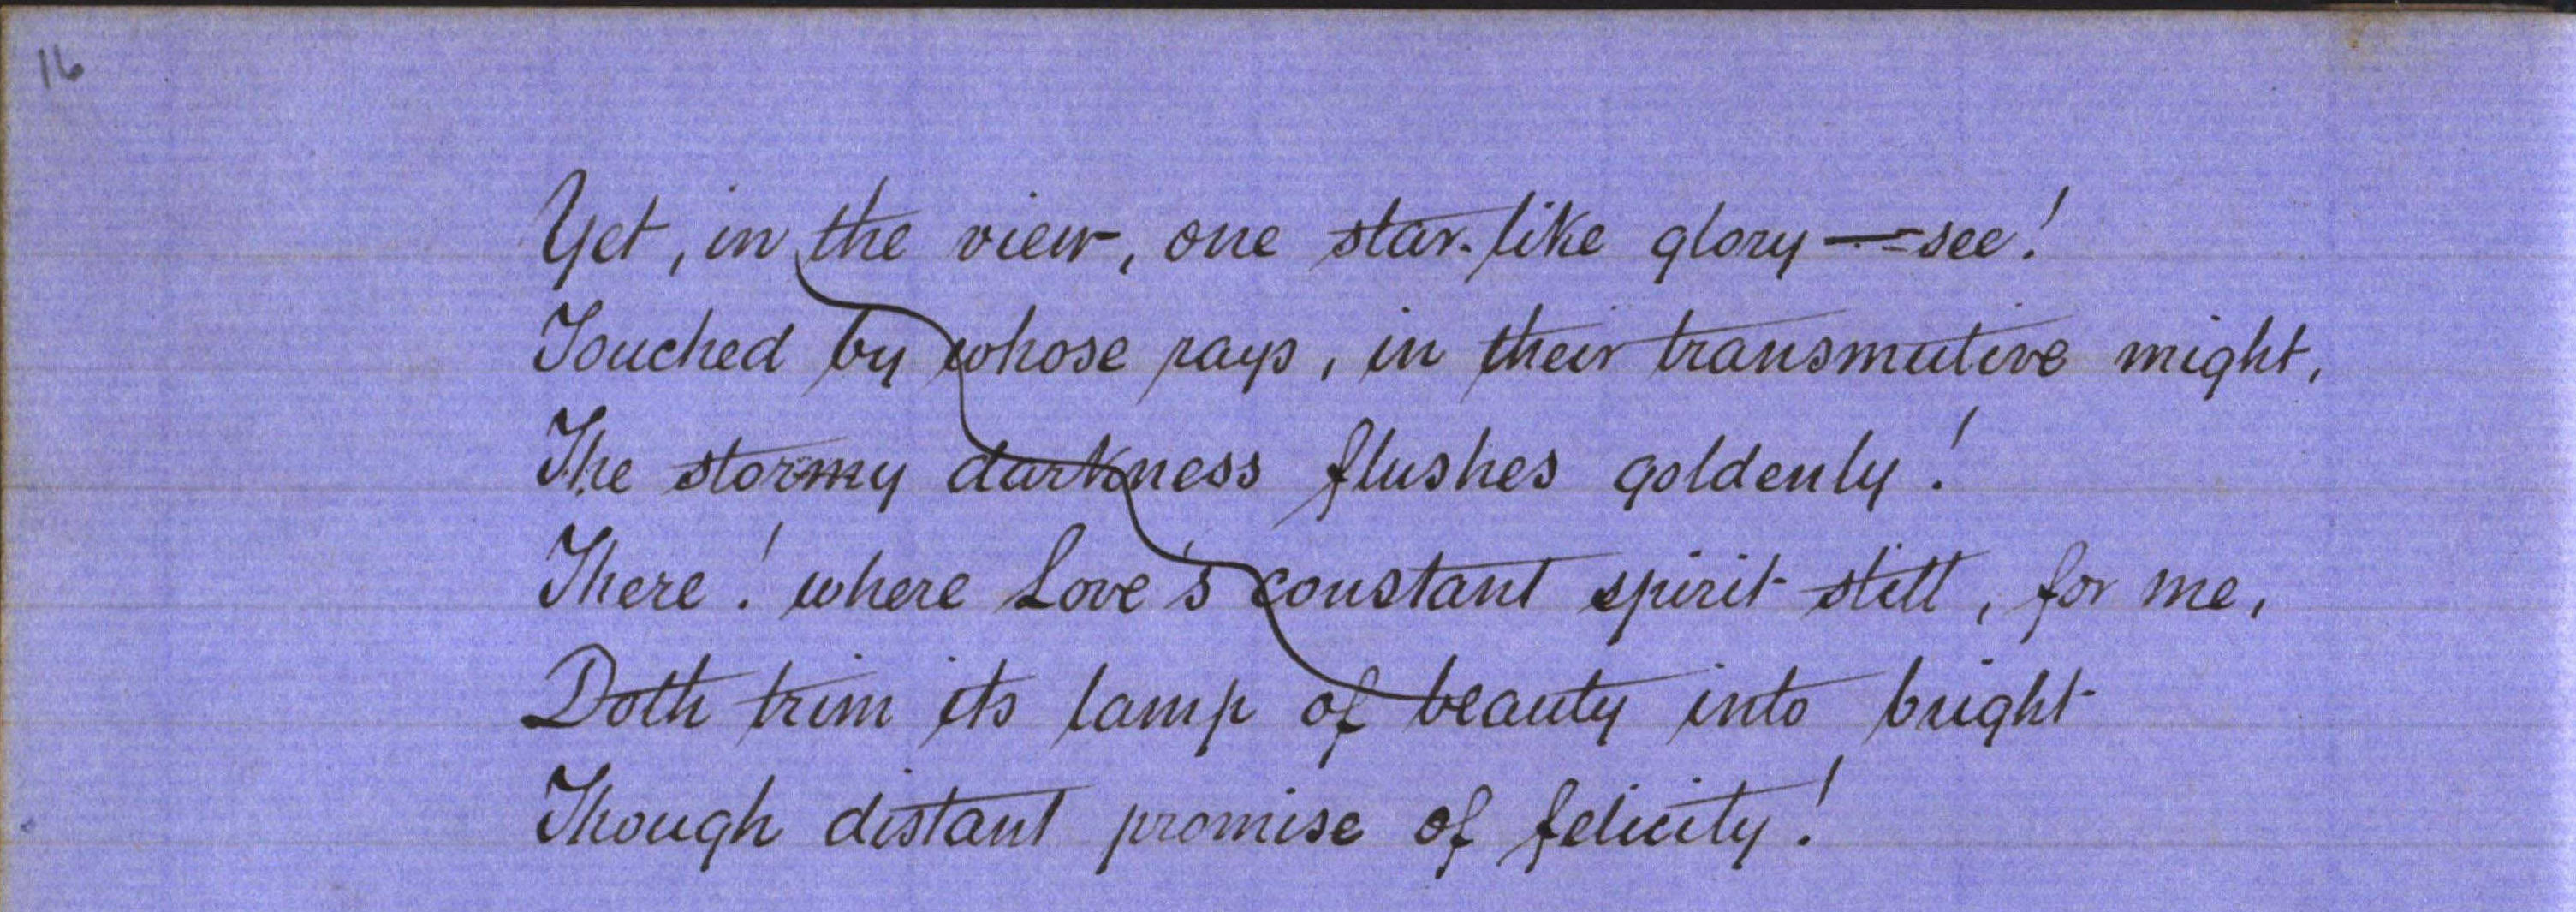 16
Yet, in the view, one star-like glory — see!
Touched by whose rays, in their transmutive might,
The stormy darkness flushes goldenly!
There! where Love's constant spirit still, for me,
Doth trim its lamp of beauty into bright
Though distant promise of felicity!